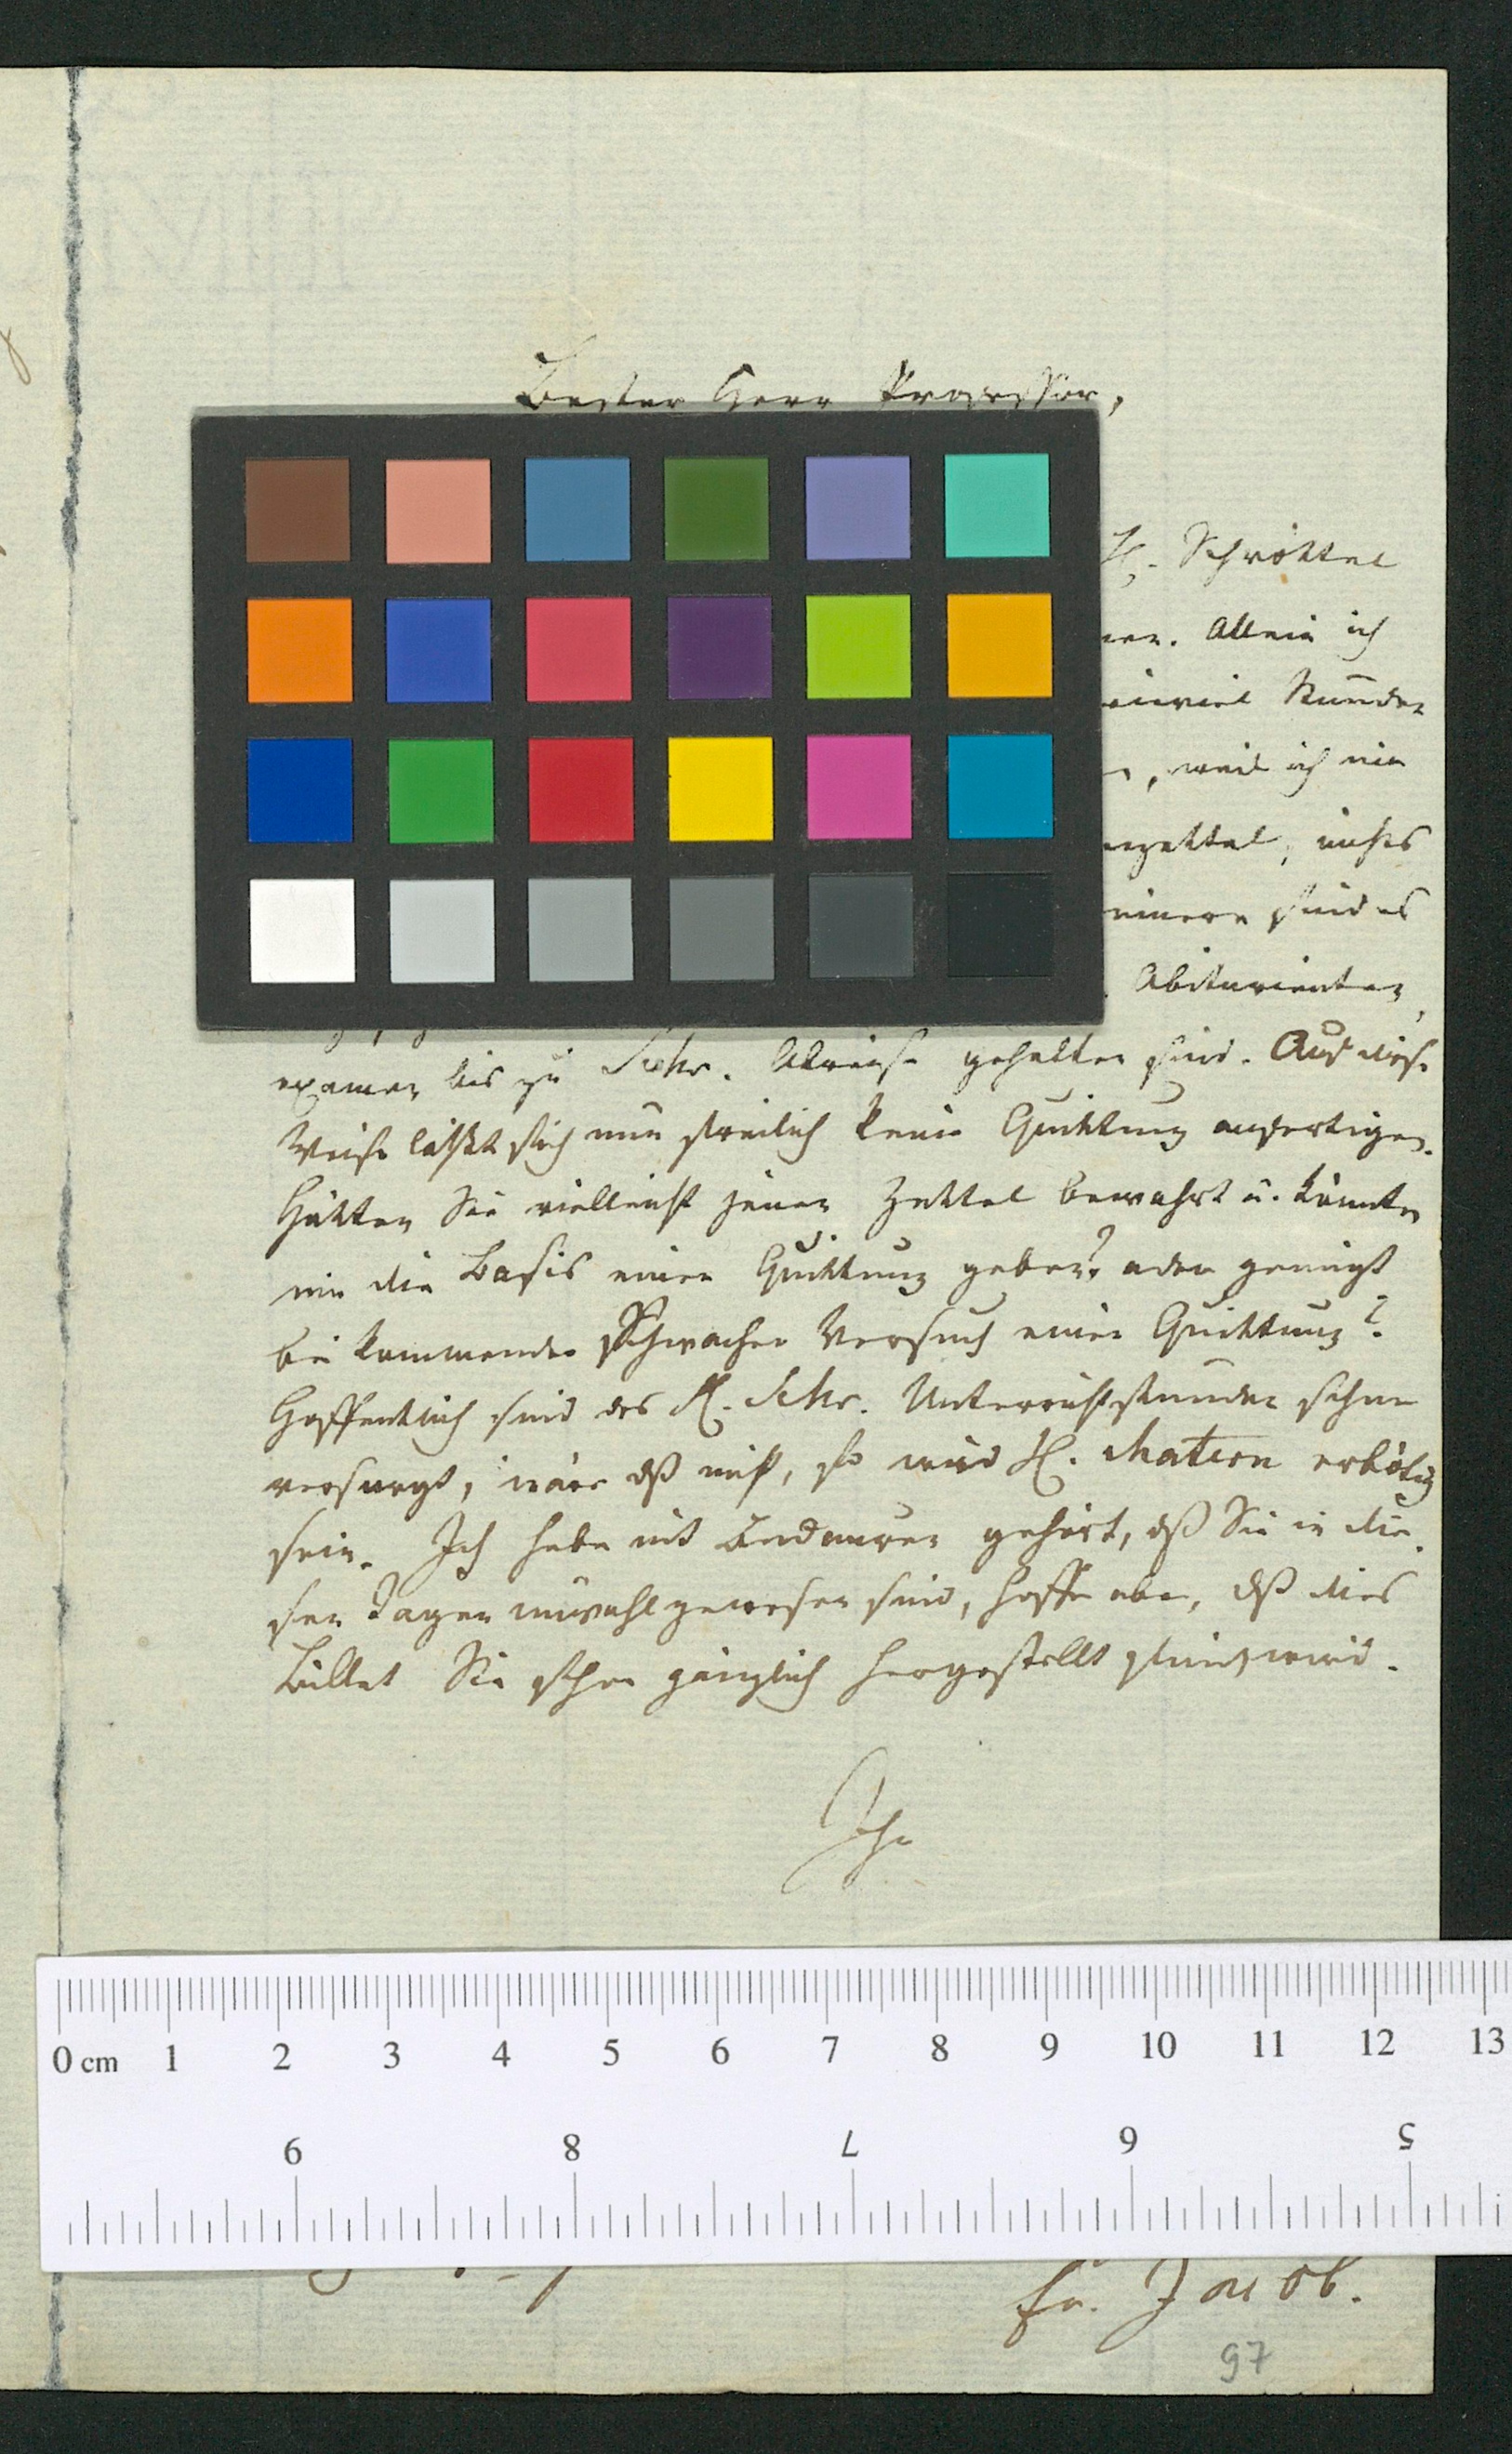 Bester Herr Professor,
H. Schröttel
Allein ich
wieviel Stunden
, weil ich nie
nzettel,
Abiturienten
examen bis zu Schr. Abreise gehalten sind. Auf diese
Weise läßt sich nun freilich keine Quittung anfertigen.
Hätten Sie vielleicht jenen Zettel bewahrt u. könnten
mir die Basis einer Quittung geben? oder genügt
bei kommender schwacher Versuch einer Quittung?
Hoffentlich sind des H. Schr. Unterrichtsstunden schon
versorgt; wäre dß nicht, so wird H. Matern erbötig
sein. Ich habe mit Bedauern gehört, dß Sie in die
sen Tagen unwohl gewesen sind, hoffe aber, dß dies
Billet Sie schon gänzlich hergestellt finden wird.
Ihr
0 cm 1 2 3 4 5 6 7 8 9 10 11 12 13
9 8 7 6 5
Fr. Jacob.
97